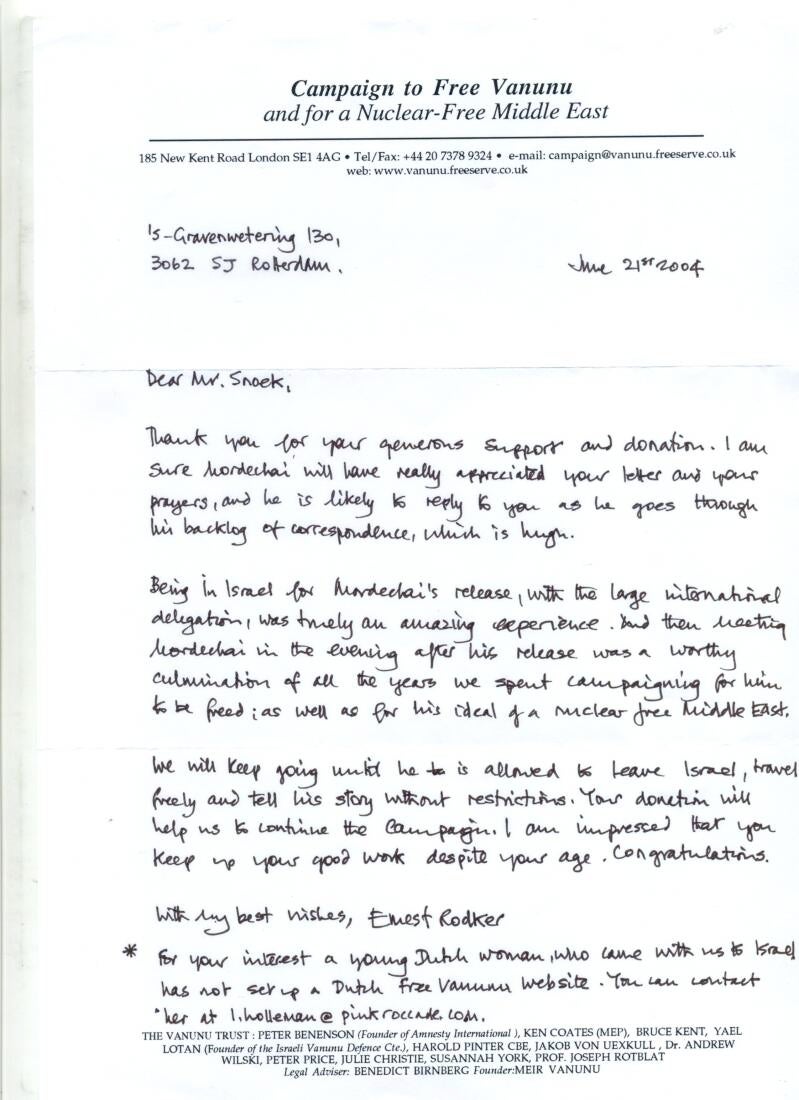 Campaign to Free Vanunu
and for a Nuclear-Free Middle East
185 New Kent Road London SE1 4AG • Tel/Fax: +44 20 7378 9324 • e-mail: campaign@vanunu.freeserve.co.uk
web: www.vanunu.freeserve.co.uk
's-Gravenwetering 130,
3062 SJ Rotterdam.
June 21st 2004
Dear Mr. Snoek,
Thank you for your generous support and donation. I am
sure Mordechai will have really appreciated your letter and your
prayers, and he is likely to reply to you as he goes through
his backlog of correspondence, which is hugh.
Being in Israel for Mordechai's release, with the large international
delegation, was truely an amazing experience. And then meeting
Mordechai in the evening after his release was a worthy
culmination of all the years we spent campaigning for him
to be freed; as well as for his ideal of a nuclear free Middle East.
We will keep going until he is allowed to leave Israel, travel
freely and tell his story without restrictions. Your donation will
help us to continue the Campaign. I am impressed that you
keep up your good work despite your age. Congratulations.
With my best wishes, Ernest Rodker
* For your interest a young Dutch woman, who came with us to Israel
has not set up a Dutch free Vanunu website. You can contact
her at l.holleman@pinkroccade.com.
THE VANUNU TRUST : PETER BENENSON (Founder of Amnesty International ), KEN COATES (MEP), BRUCE KENT, YAEL
LOTAN (Founder of the Israeli Vanunu Defence Cte.), HAROLD PINTER CBE, JAKOB VON UEXKULL , Dr. ANDREW
WILSKI, PETER PRICE, JULIE CHRISTIE, SUSANNAH YORK, PROF. JOSEPH ROTBLAT
Legal Adviser: BENEDICT BIRNBERG Founder:MEIR VANUNU